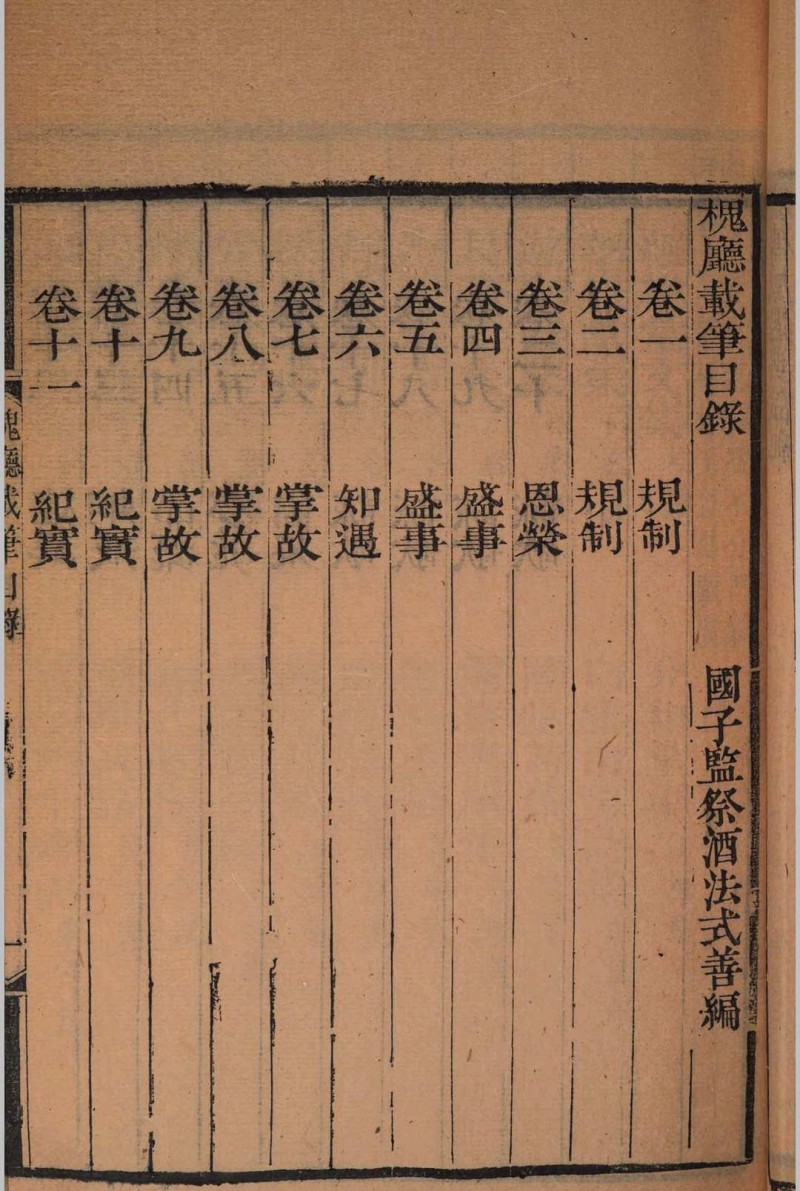 槐廳載筆目錄 國子監祭酒法式善編
卷一 規制
卷二 規制
卷三 恩榮
卷四 盛事
卷五 盛事
卷六 知遇
卷七 掌故
卷八 掌故
卷九 掌故
卷十 紀實
卷十一 紀實
槐廳載筆目錄 一